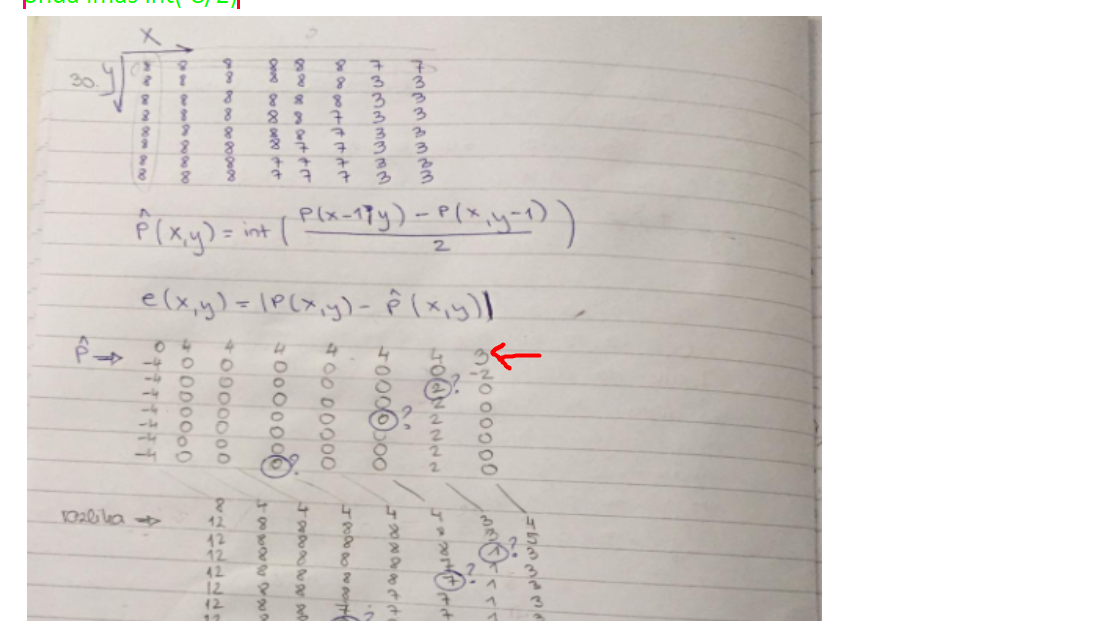 onda imas int(-8/2)
X
30. y
8 8 8 8 8 8 7 7
8 8 8 8 8 8 3 3
8 8 8 8 8 8 3 3
8 8 8 8 8 7 3 3
8 8 8 8 8 7 3 3
8 8 8 8 7 7 3 3
8 8 8 7 7 7 3 3
8 8 8 7 7 7 3 3
P̂(x,y) = int( P(x-1,y) - P(x,y-1) / 2 )
e(x,y) = |P(x,y) - P̂(x,y)|
P̂ → 0 4 4 4 4 4 4 3
-4 0 0 0 0 0 0 -2
-4 0 0 0 0 0 2? 0
-4 0 0 0 0 0 2 0
-4 0 0 0 0 0? 2 0
-4 0 0 0 0 0 2 0
-4 0 0 0 0 0 2 0
-4 0 0 0? 0 0 2 0
razlika → 8 4 4 4 4 4 3 4
12 8 8 8 8 8 3 5
12 8 8 8 8 8 1? 3
12 8 8 8 8 7 1 3
12 8 8 8 8 7? 1 3
12 8 8 8 7 7 1 3
12 8 8 7 7 7 1 3
12 8 8 ? 7 7 1 3